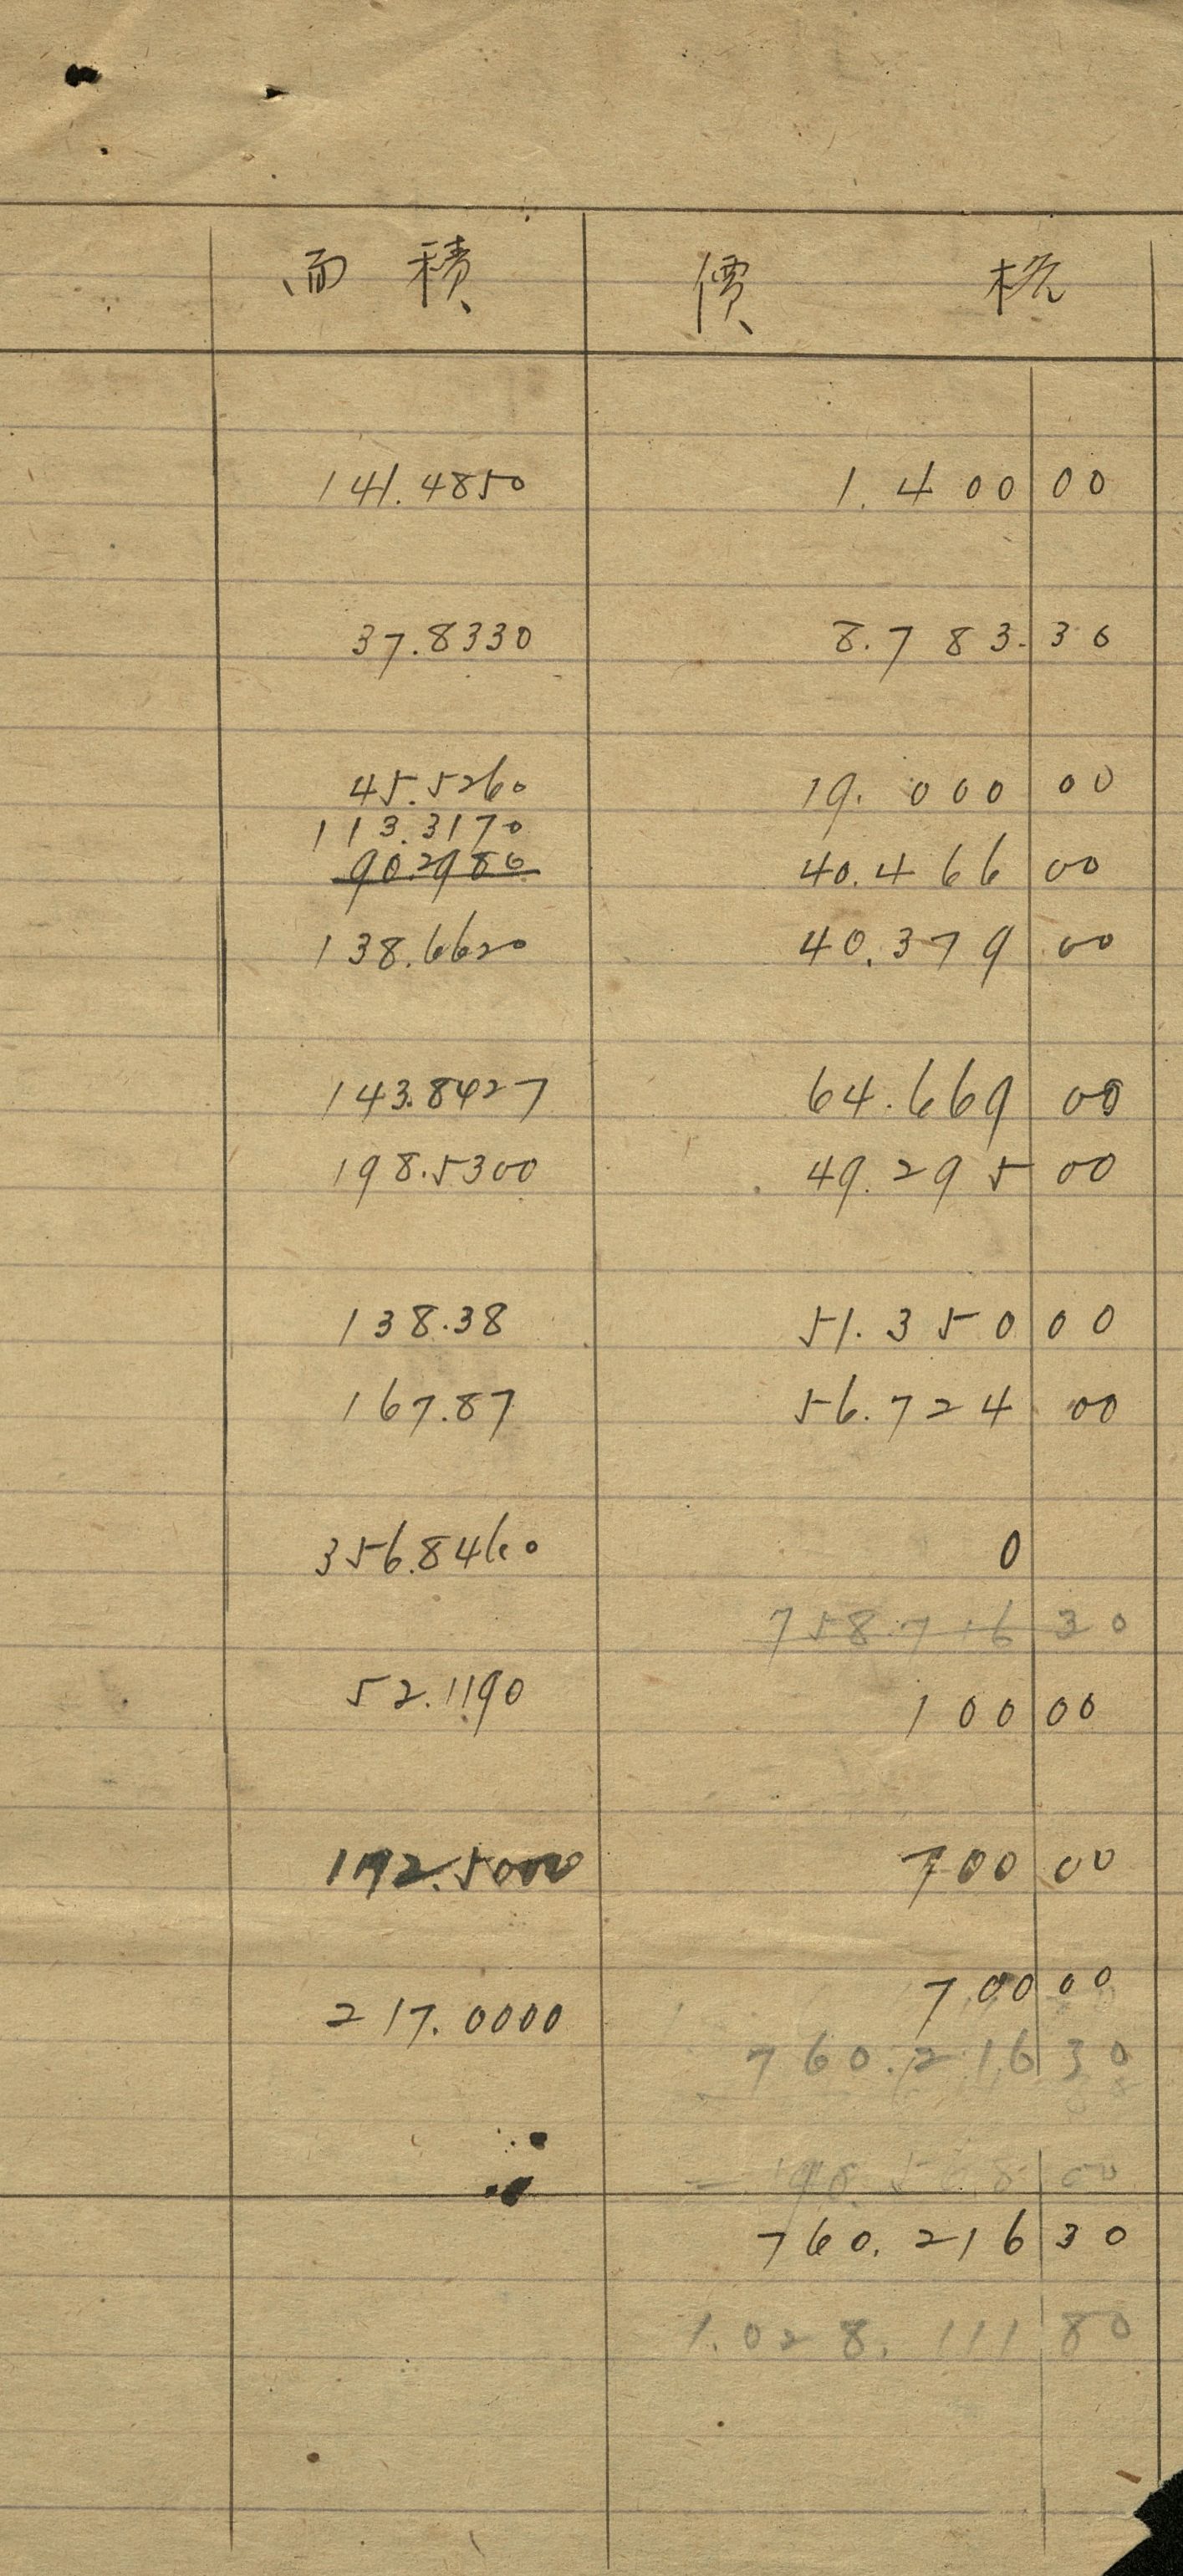 面積 價格
141.4850 1.400 00
37.8330 8.783.30
45.5260 19.000 00
113.3170
90.2980 40.466 00
138.6620 40.379 00
143.8427 64.669 00
198.5300 49.295 00
138.38 51.350 00
167.87 56.724 00
356.8460 0
758.716 30
52.1190 100 00
700 00
217.0000 700 00
760.216 30
760.216 30
1.028.111 80